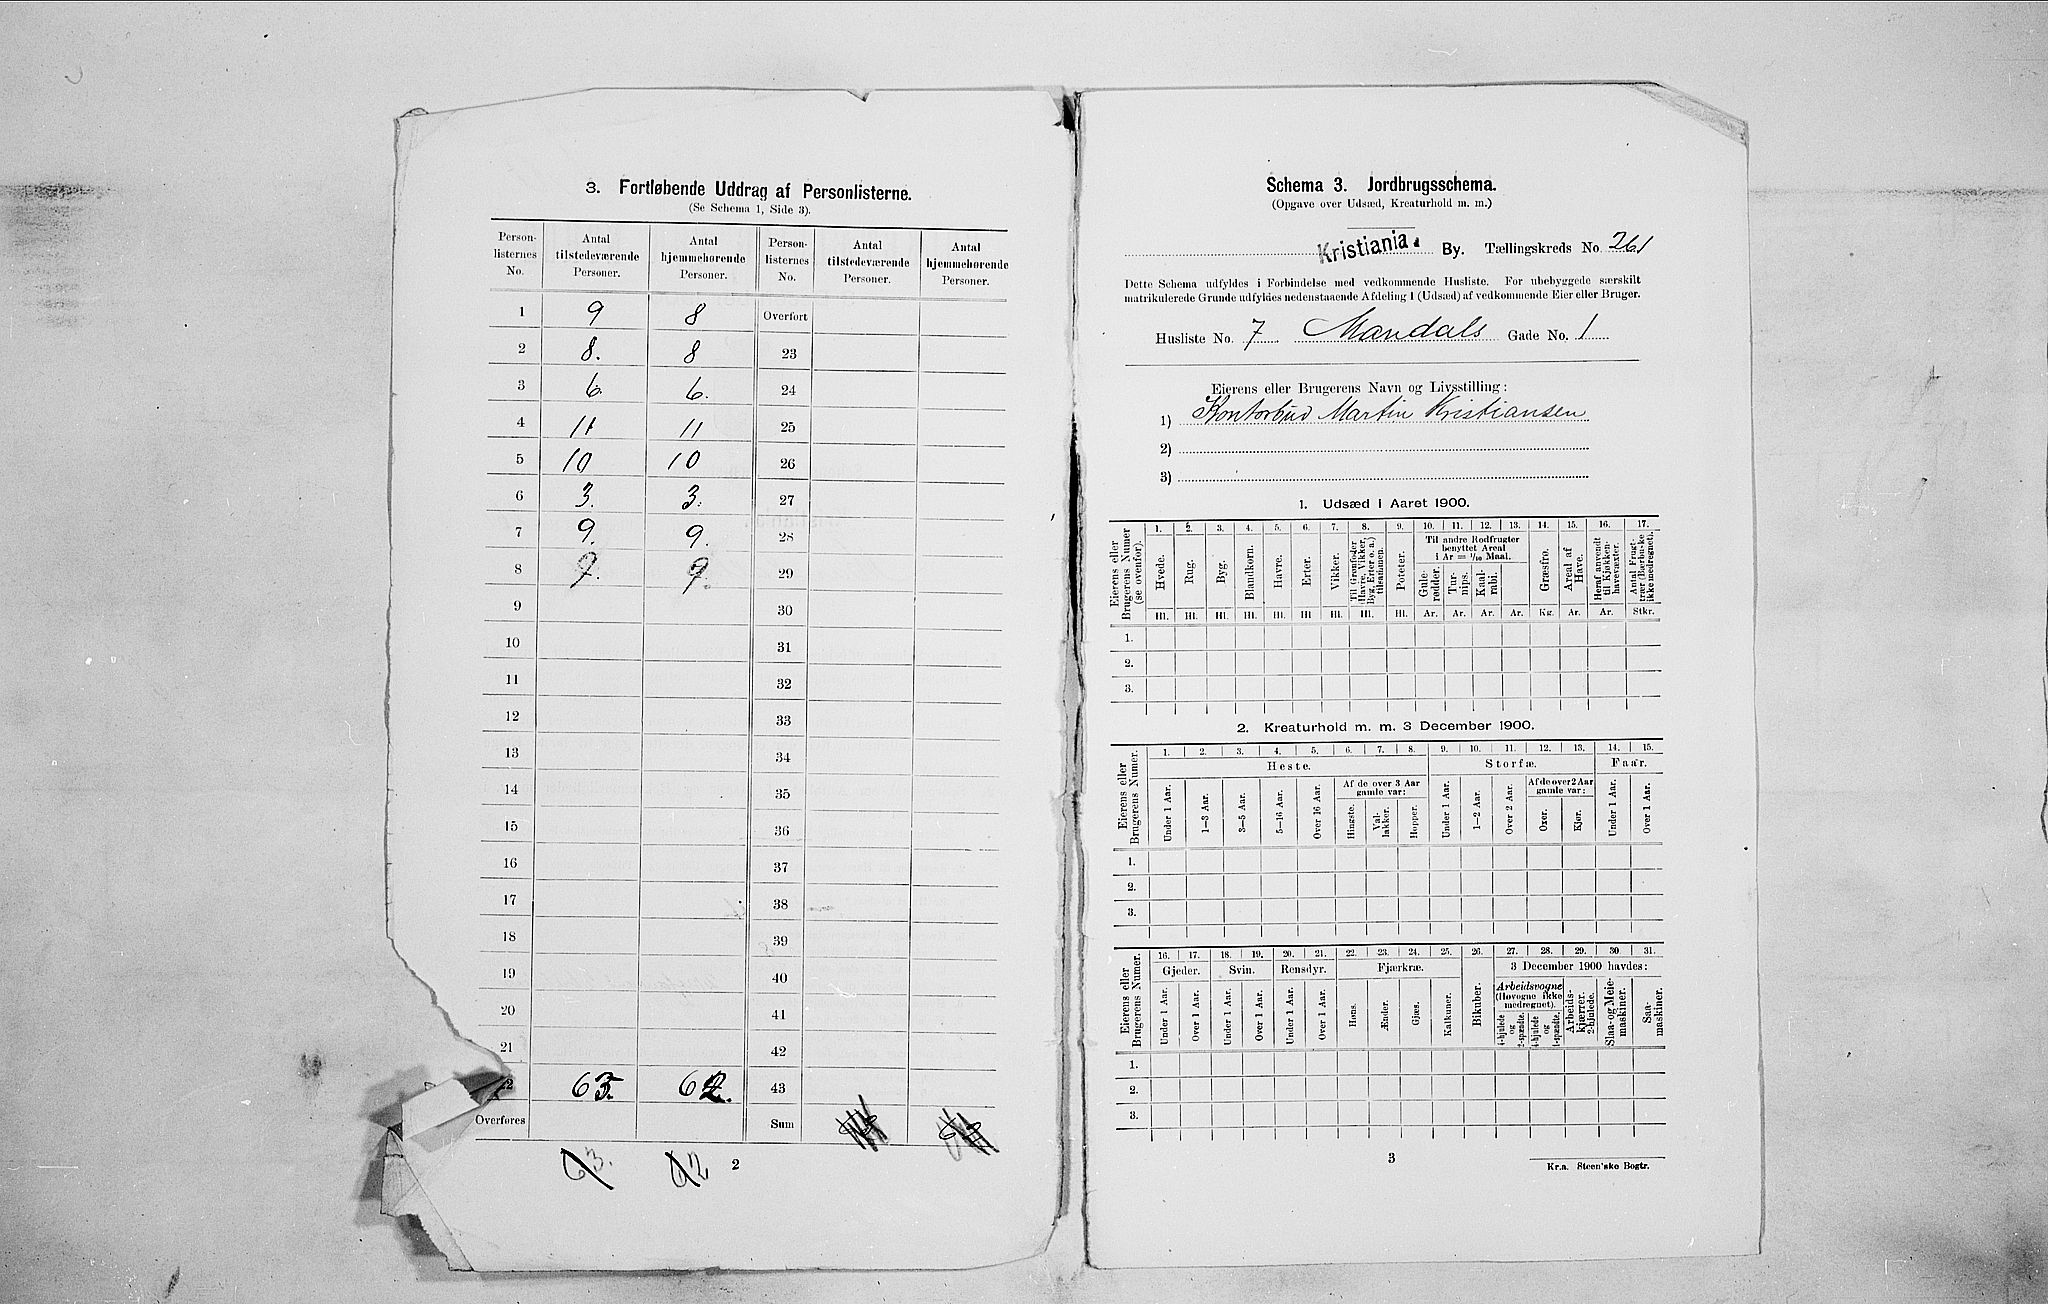 3. Fortløbende Uddrag af Personlisterne.
(Se Schema 1, Side 3).
Person-listernes No. Antal tilstedeværende Personer. Antal hjemmehørende Personer. Person-listernes No. Antal tilstedeværende Personer. Antal hjemmehørende Personer.
1 9 8 Overført
2 8. 8 23
3 6. 6. 24
4 11 11 25
5 10 10 26
6 3. 3. 27
7 9. 9. 28
8 7. 9. 29
9 30
10 31
11 32
12 33
13 34
14 35
15 36
16 37
17 38
18 39
19 40
20 41
21 42
22 63. 62. 43
Overføres Sum
63. 62
2
Schema 3. Jordbrugsschema.
(Opgave over Udsæd, Kreaturhold m. m.)
Kristiania. By. Tællingskreds No. 261
Dette Schema udfyldes i Forbindelse med vedkommende Husliste. For ubebyggede særskilt
matrikulerede Grunde udfyldes nedenstaaende Afdeling 1 (Udsæd) af vedkommende Eier eller Bruger.
Husliste No. 7 Mandals Gade No. 1
Eierens eller Brugerens Navn og Livsstilling:
1) Kontorbud Martin Kristiansen
2)
3)
1. Udsæd i Aaret 1900.
Eierens eller Brugerens Numer (se ovenfor).
1. 2. 3. 4. 5. 6. 7. 8. 9. 10. 11. 12. 13. 14. 15. 16. 17.
Til andre Rodfrugter benyttet Areal i Ar = 1/10 Maal.
Hvede. Rug. Byg. Blandkorn. Havre. Erter. Vikker. Til Grønfoder (Havre, Vikker, Byg, Erter o. a.) tilsaamen. Poteter. Gule-rødder. Tur-nips. Kaal-rabi. Græsfrø. Areal af Have. Heraf anvendt til Kjøkken-havevæxter. Antal Frugt-trær (Bærbuske ikke medregnet).
Hl. Hl. Hl. Hl. Hl. Hl. Hl. Hl. Hl. Ar. Ar. Ar. Ar. Kg. Ar. Ar. Stkr.
1.
2.
3.
2. Kreaturhold m. m. 3 December 1900.
Eierens eller Brugerens Numer.
1. 2. 3. 4. 5. 6. 7. 8. 9. 10. 11. 12. 13. 14. 15.
Heste. Storfæ. Faar.
Af de over 3 Aar gamle var: Af de over 2 Aar gamle var:
Under 1 Aar. 1–3 Aar. 3–5 Aar. 5–16 Aar. Over 16 Aar. Hingste. Val-lakker. Hopper. Under 1 Aar. 1–2 Aar. Over 2 Aar. Oxer. Kjør. Under 1 Aar. Over 1 Aar.
1.
2.
3.
Eierens eller Brugerens Numer.
16. 17. 18. 19. 20. 21. 22. 23. 24. 25. 26. 27. 28. 29. 30 31.
Gjeder. Svin. Rensdyr. Fjærkræ. 3 December 1900 havdes:
Arbeidsvogne (Høvogne ikke medregnet).
Under 1 Aar. Over 1 Aar. Under 1 Aar. Over 1 Aar. Under 1 Aar. Over 1 Aar. Høns. Ænder. Gjæs. Kalkuner. Bikuber. 4-hjulede og 2-spændte. 4-hjulede og 1-spændte. Arbeids-kjærrer. 2-hjulede. Slaa- og Meie-maskiner. Saa-maskiner.
1.
2.
3.
3
Kr.a. Steen'ske Bogtr.